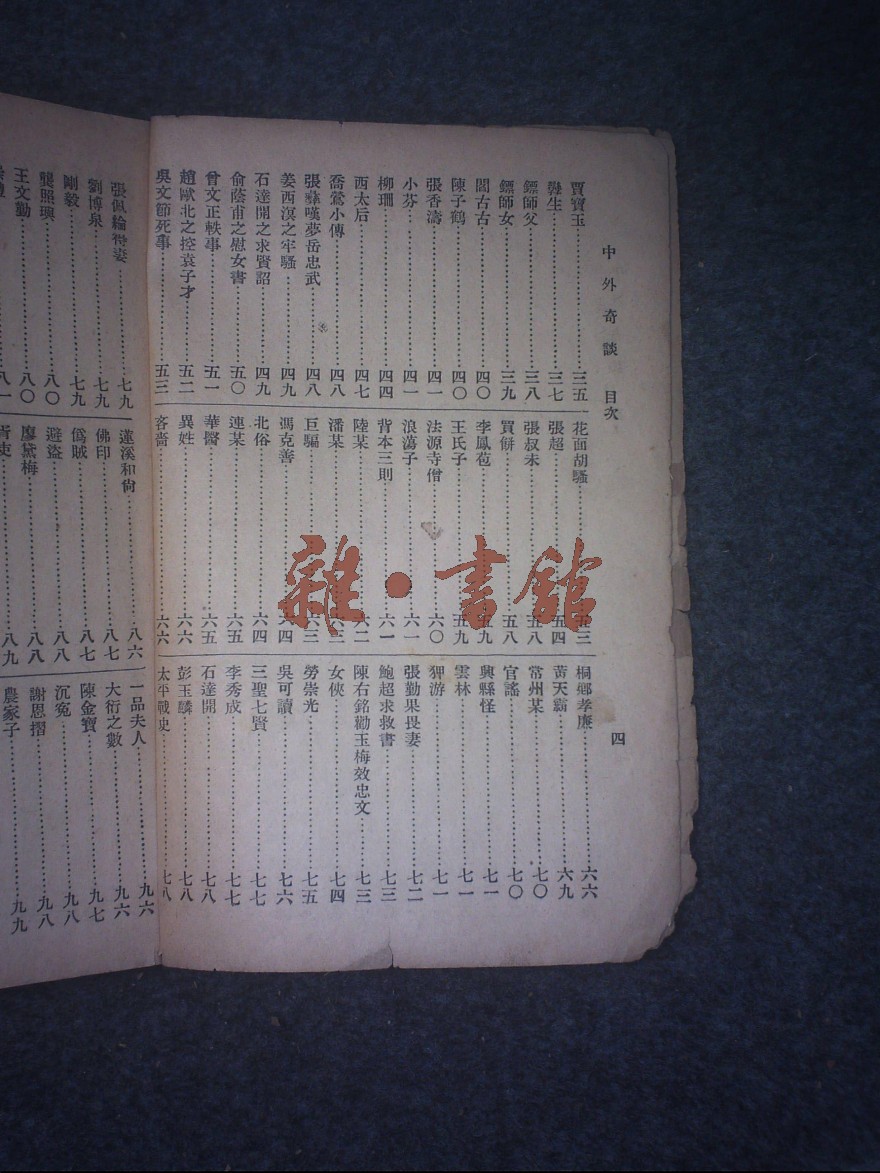 中外奇談　目次
四
賈寶玉…………三五
鏢師父…………三八
鏢師女…………三九
閻古古…………四〇
陳子鶴…………四〇
張香濤…………四一
小芬…………四一
柳珊…………四四
西太后…………四七
喬鶯小傳…………四八
張彝嘆夢岳忠武…………四八
姜西溟之牢騷…………四九
石達開之求賢詔…………四九
俞蔭甫之慰女書…………五〇
曾文正軼事…………五一
趙歐北之控袁子才…………五二
吳文節死事…………五三
花面胡騷…………五三
張超…………五四
張叔未…………五八
買餅…………五八
李鳳苞…………五九
王氏子…………五九
法源寺僧…………六〇
浪蕩子…………六一
背本三則…………六一
陸某…………六二
潘某…………六三
巨騙…………六三
馮克善…………六四
北俗…………六四
連某…………六五
華醫…………六五
異姓…………六六
吝嗇…………六六
桐鄉孝廉…………六六
黃天霸…………六九
常州某…………七〇
官謠…………七〇
興縣怪…………七一
雲林…………七一
狎游…………七一
張勤果畏妻…………七二
鮑超求救書…………七三
陳右銘勸玉梅效忠文…………七三
女俠…………七四
勞崇光…………七五
吳可讀…………七六
三聖七賢…………七七
李秀成…………七七
石達開…………七八
彭玉麟…………七八
太平戰史…………七八
張佩綸得妻…………七九
劉博泉…………七九
剛毅…………七九
龔照璵…………八〇
王文勤…………八〇
八一
蓮溪和尙…………八六
佛印…………八七
僞賊…………八七
避盜…………八八
廖黛梅…………八八
八九
一品夫人…………九六
大衍之數…………九六
陳金寶…………九七
沉冤…………九八
謝恩摺…………九八
農家子…………九九
雜·書館